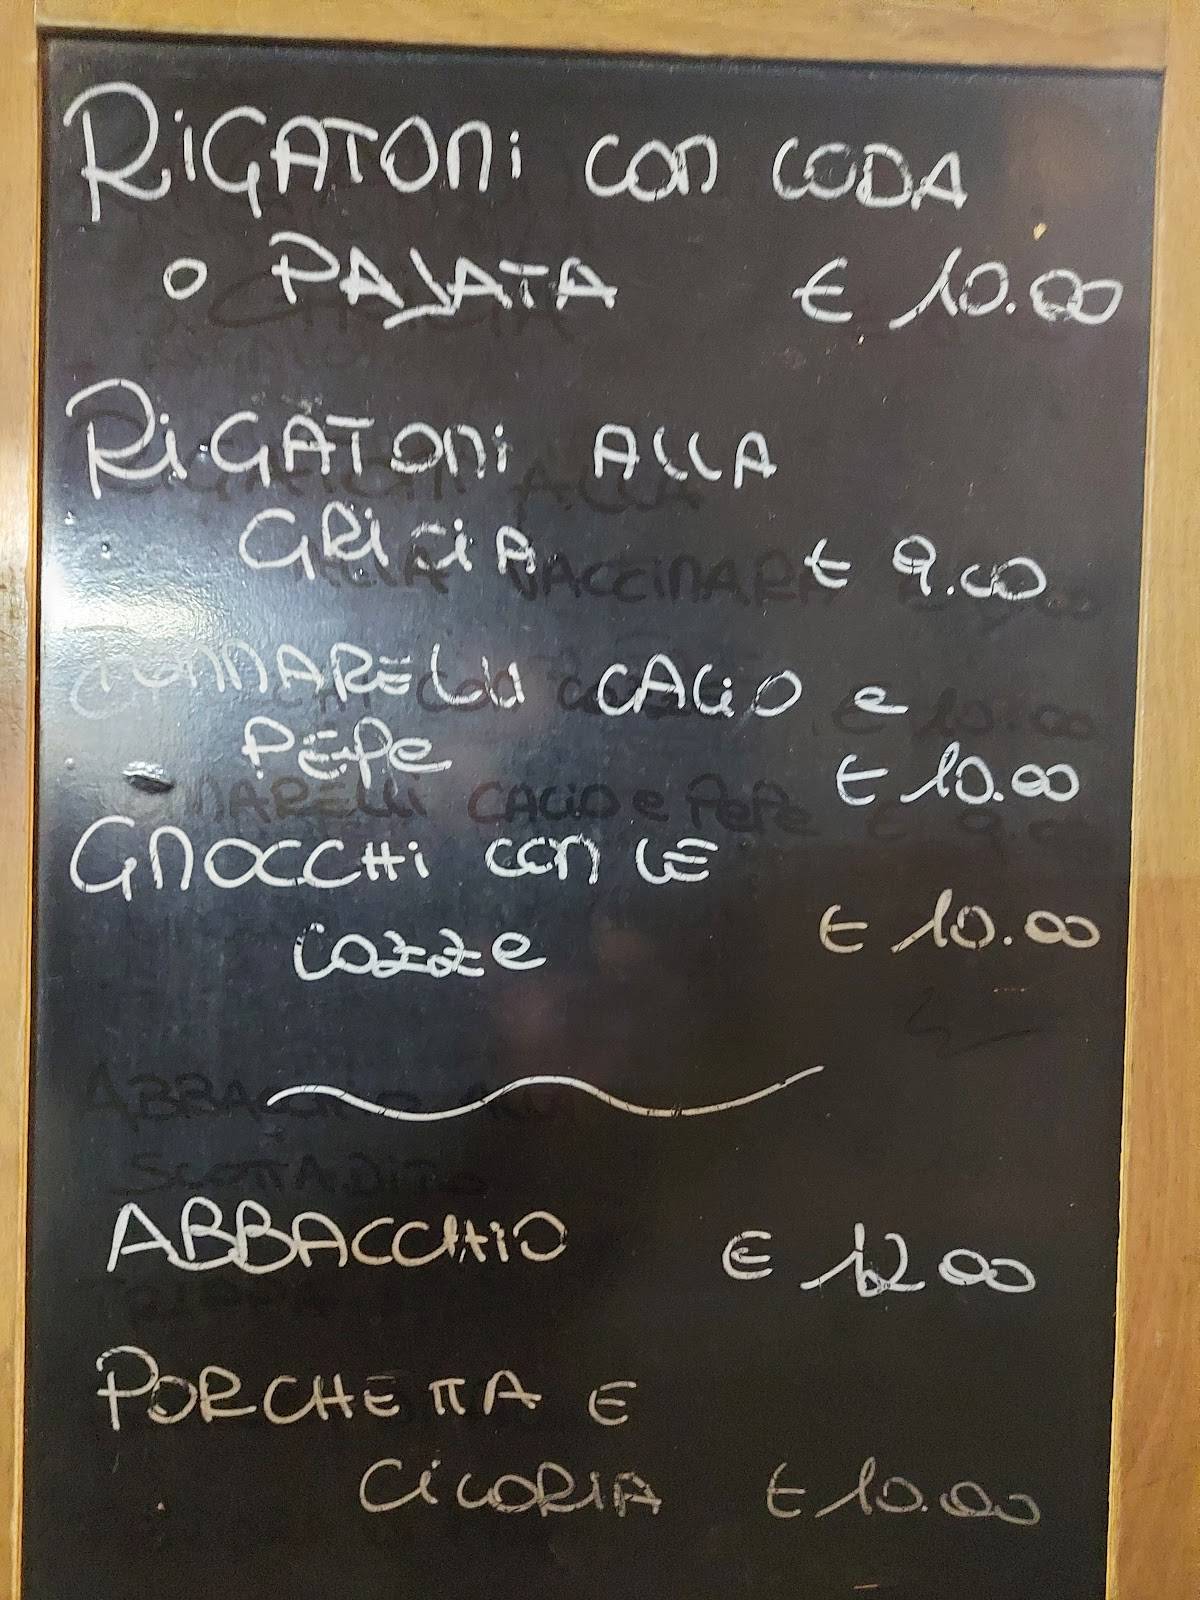 RiGATONi CON CODA
o PAJATA € 10.00
RiGATONi ALLA
GRiCiA € 9.00
TONNARELLI CACiO e
PEPe € 10.00
GNOCCHi CON LE
COZZe € 10.00
ABBACCHiO € 12.00
PORCHETTA E
CiCORiA € 10.00